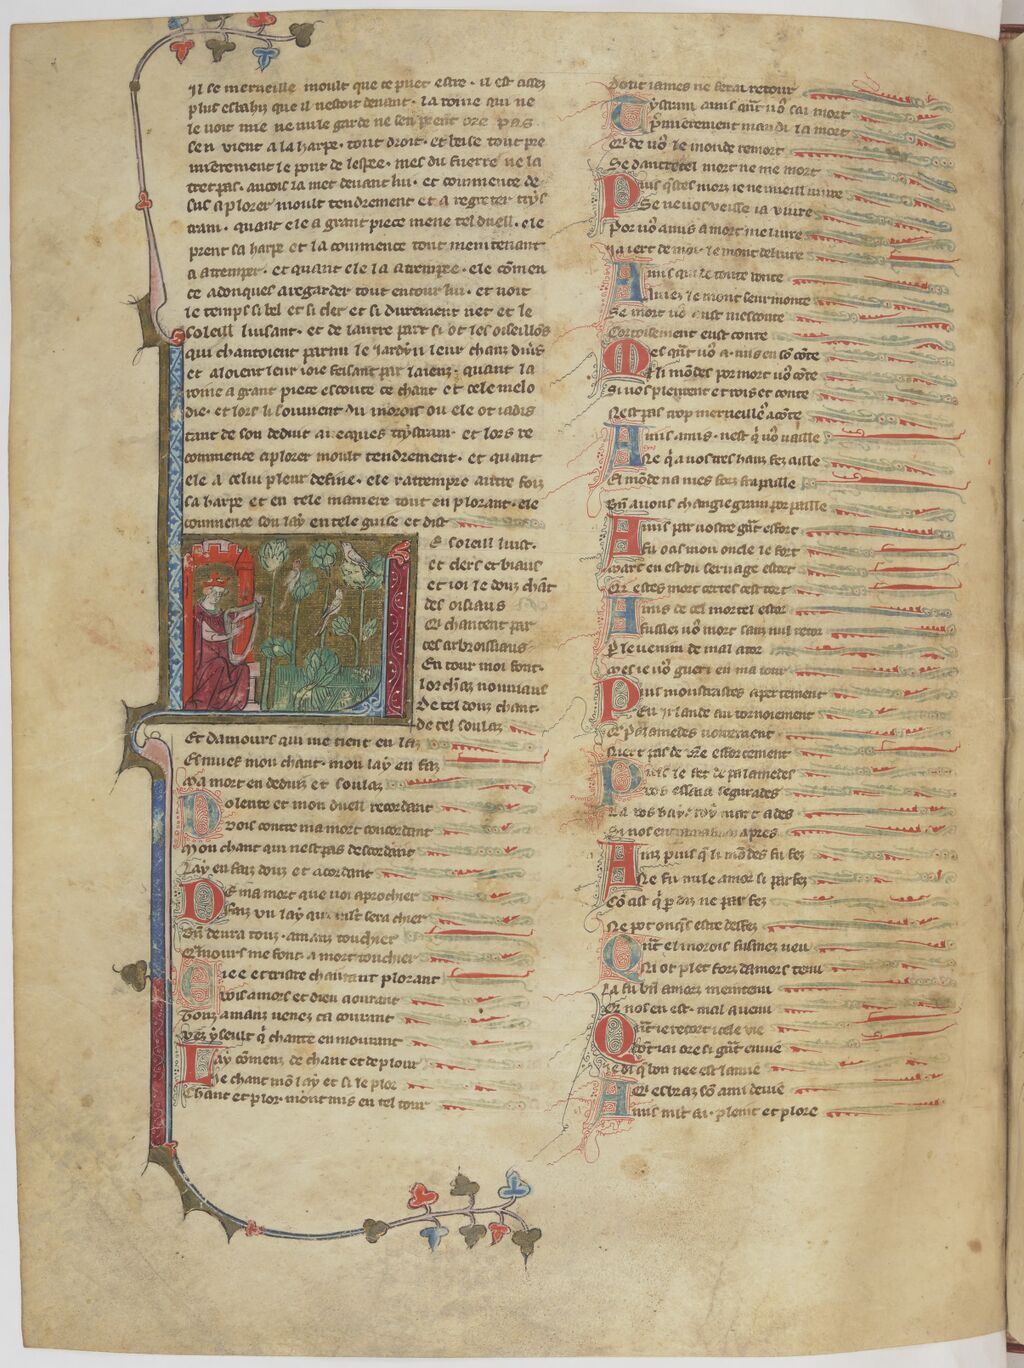 Il se merueille moult que ce puet estre. il est assez
plus esbahiz que il nestoit deuant. la roine qui ne
le voit mie ne nule garde ne sen prent ore pas
sen vient a la harpe. tout droit. et baise tout pre
mierement le pont de lespee. mes du fuerre ne la
tret pas. aucois la met deuant lui. et commence de
sus a plorer moult tendrement et a regreter trys
tram. quant ele a grant piece mene tel duell. ele
prent sa harpe et la commence tout meintenant
a atremper. et quant ele la atrempee. ele comen
ce adonques a regarder tout entour lui. et voit
le temps si bel et si cler et si durement net et le
soleill luisant. et de lautre part si ot les oiseillos
qui chantoient parmi le jardyn leur chanz diuers
et aloient leur ioie feisant par laienz. quant la
roine a grant piece escoute ce chant et cele melo
die. et lors li souuient du morois ou ele ot iadis
tant de son deduit auecques trystram et lors re
commence a plorer moult tendrement. et quant
ele a celui pleur define. ele ratrempe autre foiz
sa harpe et en tele maniere tout en plorant. ele
commence son lay en tele guise et dist
E soleill luist.
et clers et biaus
et ioi le douz chant
des oisiaus
Qui chantent par
ces arbroissiaus
En tour moi font.
lor chanz nouuiaus
De tel douz chant.
de tel soulaz
Et damours qui me tient en laz
Esmues mon chant. mon lay en faz
Ma mort en deduis et soulaz
Dolente et mon duell recordant
Vois contre ma mort concordant
Mon chant qui nest pas descordant
Lay en faiz douz et acordant
De ma mort que voi aprochier
Faiz vn lay qui sera chier
Bien deura touz amanz touchier
Qamours me font a mort touchier
Liee et triste chantant plorant
Vois amors et dieu aourant
Touz amanz venez ca courant
Vez yseult q chante en mourant
Lay comenz de chant et de plour
Je chant mon lay et si le plor
Chant et plor. mont mis en tel tour
Dont iames ne ferai retour
Tystram amis qnt vos sai mort
Premierement maudi la mort
Qui de vos le monde remort
Se dautretel mort ne me mort
Puis qestes morz ie ne vueill viure
Se ne vos veisse ia viure
Por vos amis a mort me liure
Ja iert de moi le mont deliure
Amis qui de toute bonte
Auiez le mont seurmonte
Se mort vos eust mesconte
Cortoisement eust conte
Mes qnt vos a mis en son conte
Et li mondes por mort vos conte
Si vos plentent et rois et conte
Nest pas trop merueille a conte
Amis amis. nest q vos vaille
Ne q a vostres hauz fez aille
El monde na mes forz frapaille
Bn auons changie grain por paille
Amis par vostre gnt effort
Fu ocis mon oncle le fort
Mort en est du seruage estort
Qui estes mort certes cest tort
Amis de cel mortel estor
Fussiez vos mort sanz nul retor
P le venim de mal ator
Mes ie vos gueri en ma tour
Puis monstrastes apertement
En yrlande au tornoiement
Que palamedes voirement
Niert pas de vre efforcement
Puis le fet de palamedes
Vos essaia segurades
La vos hay roy marc ades
Si nos en apres
Ainz puis q li mondes fu fez
Ne fu nule amor si parfez
Ne pot onqs estre desfez
Qnt el morois fusmes veu
Qui ot plet forz damors tenu
La fu bn amors meintenu
Or nos en est mal auenu
Qnt ie recort icele vie
Dont iai ore si gnt enuie
Je di q bon nee est lamie
Qui es braz son ami deuie
Amis mit ai. pleint et plore